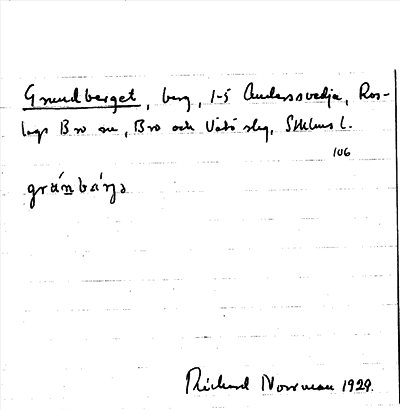 Grundberget, berg, 1-5 Anderssvedja, Ros-
lags Bro sn, Bro och Vätö slg, Sthlms l.
106
Richard Norrman 1929.